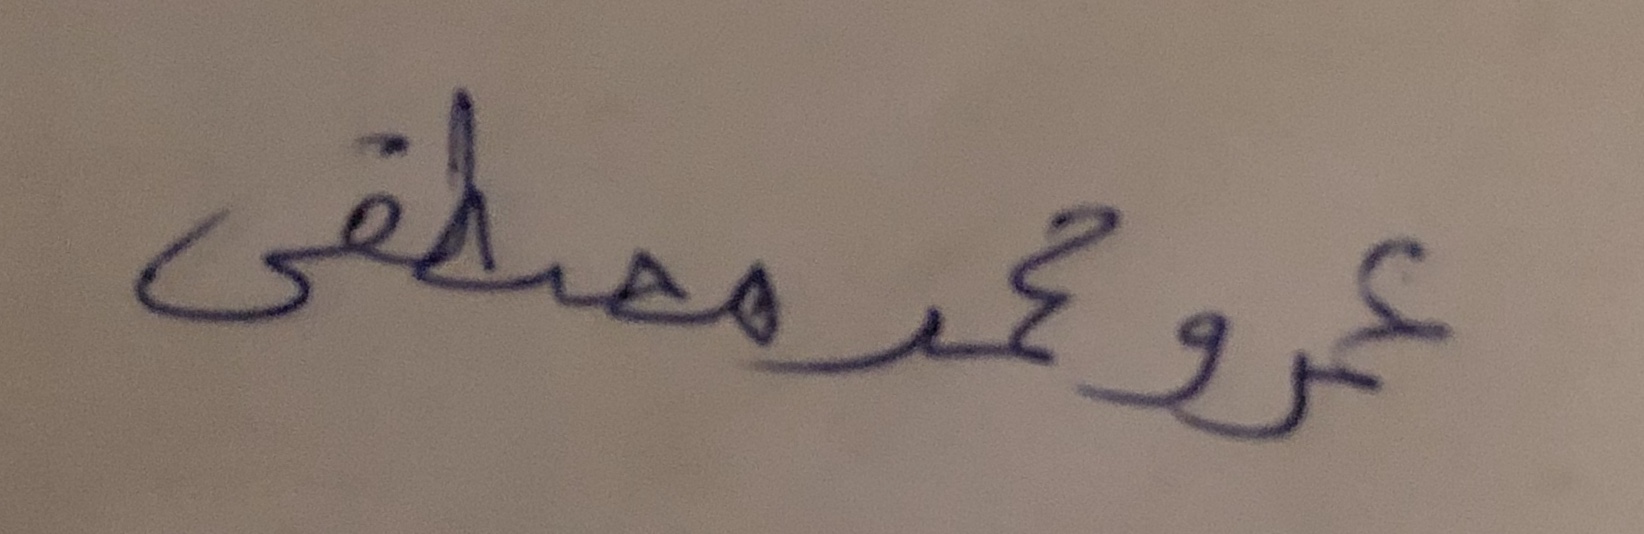 عمرو محمد مصطفى